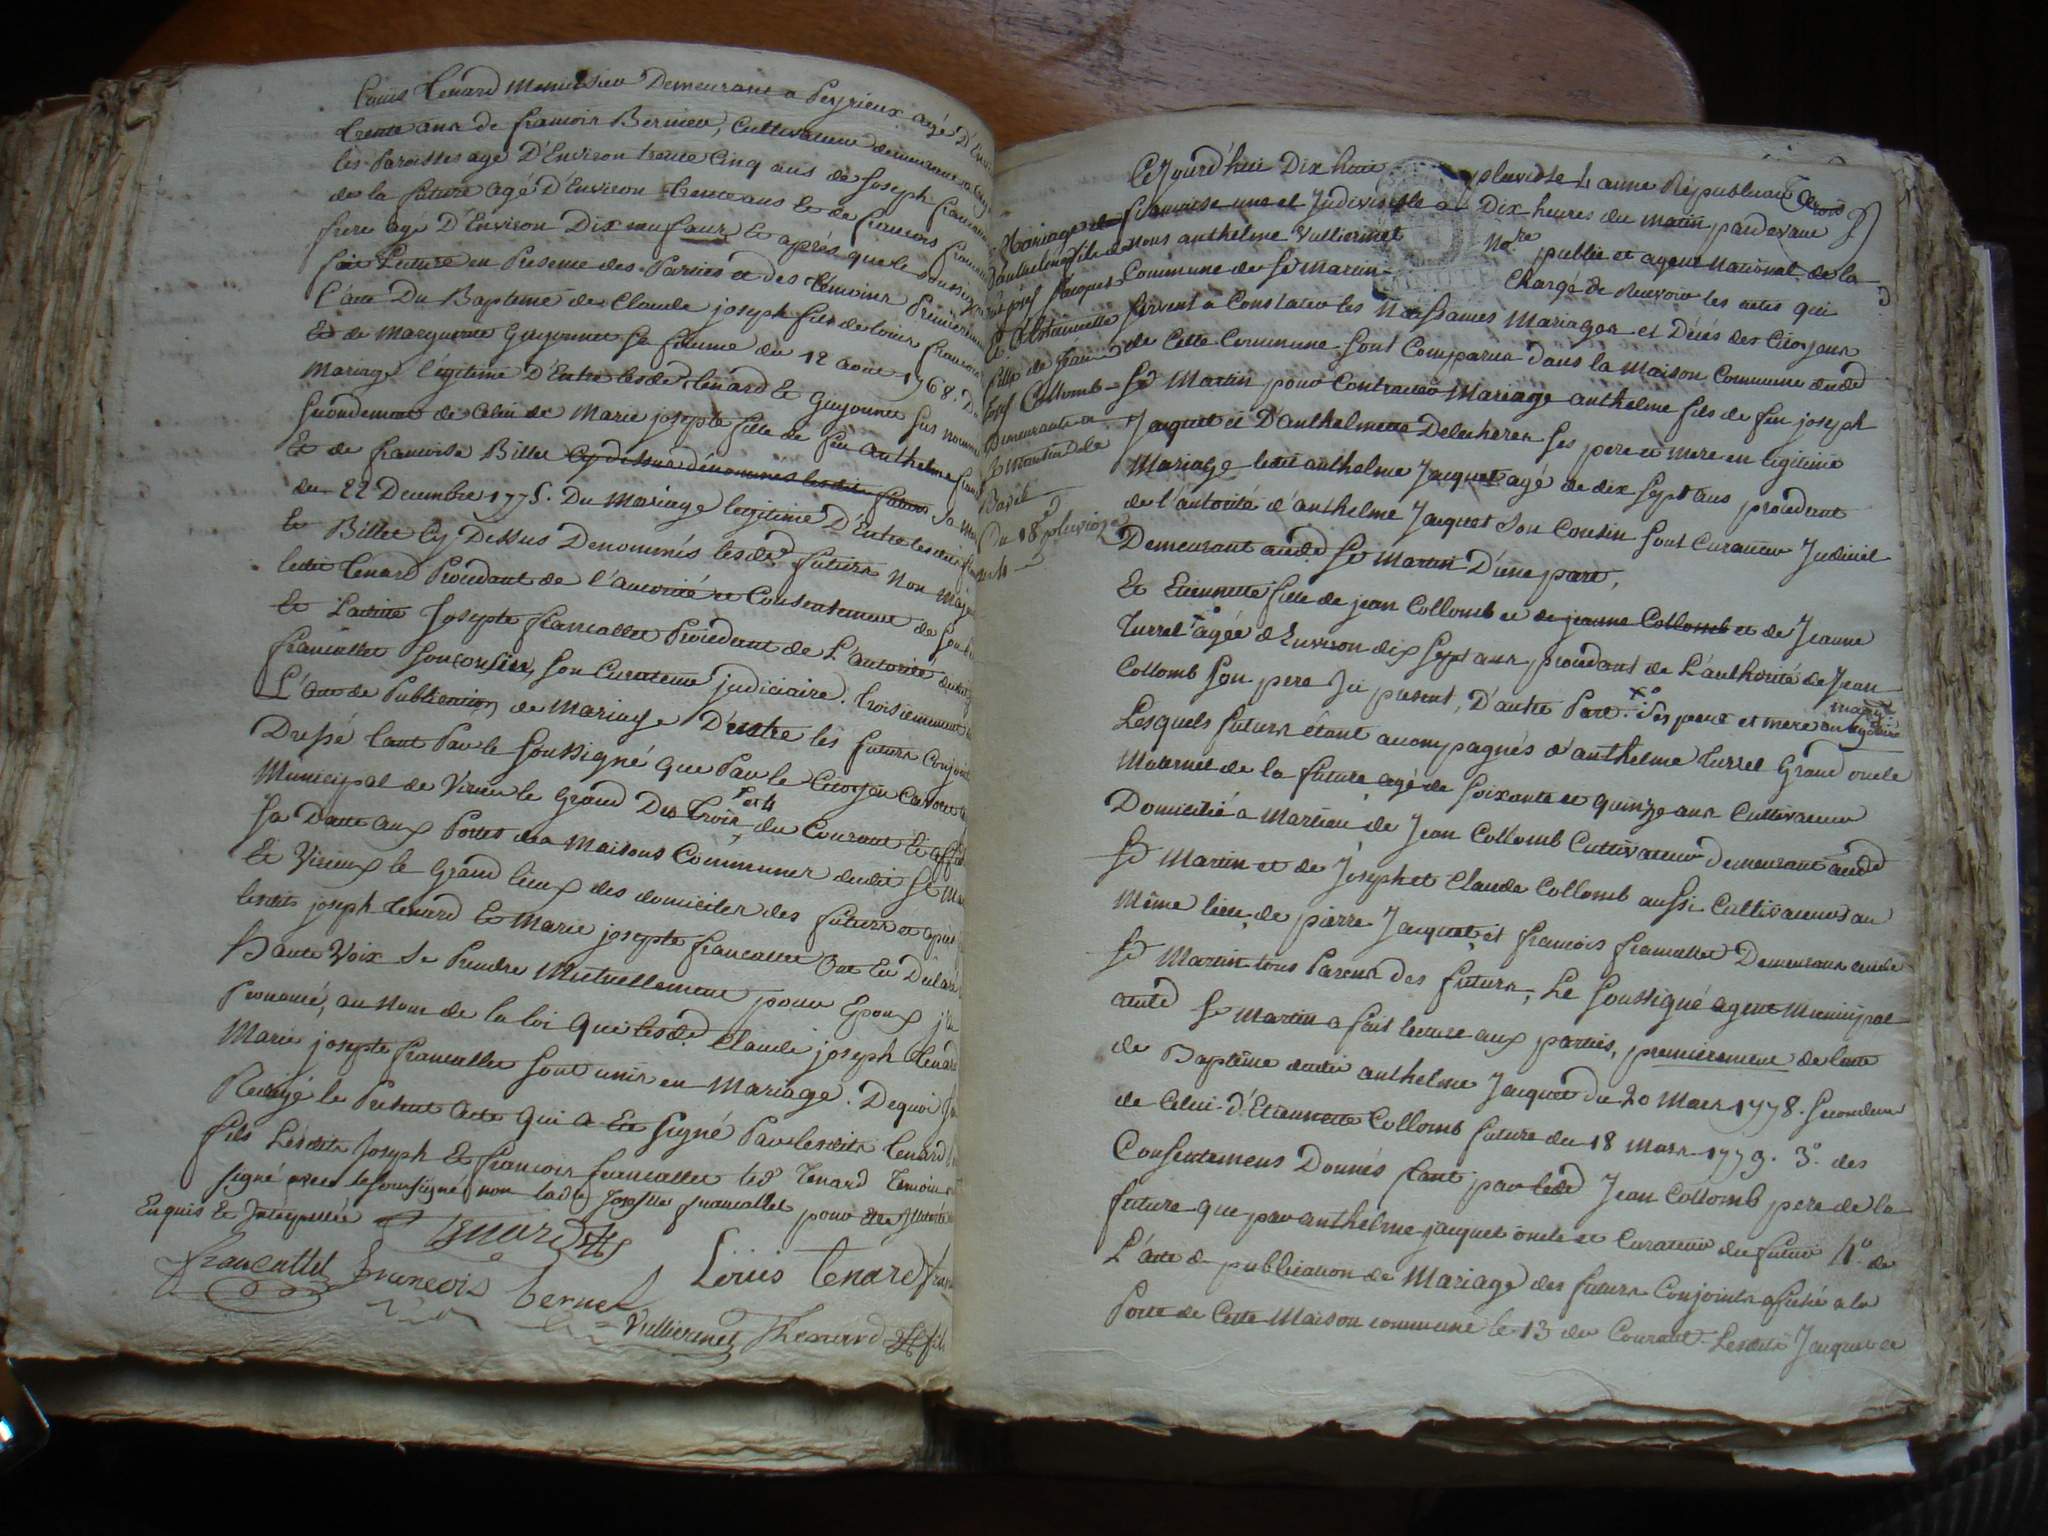 Louis Tenard Menuisier Demeurant a Peyrieux agé D'
trente ans de francois Bernier, Cultivateur demeurant a
les Paroisses agé D'Environ trente Cinq ans de Joseph
de la future agé D'Environ trente ans Et de francois
frere agé D'Environ Dix neuf ans Et après que le soussigné
fait Lecture en Presence des Parties et des temoins Premierement
L'acte Du Baptème de Claude joseph fils de louis
Et de Marguerite Guyonnet sa femme du 12 aout 1768. Du
Mariage légitime D'Entre lesd. tenard Et Guyonnet sus nommé
Secondement de Celui de Marie josepte fille de feu Anthelme
Et de francoise Billet Cy dessus dénommés lesdits futurs sa
du 22 Decembre 1775. Du Mariage legitime D'Entre lesdits
Et Billet Cy Dessus Denommés lesd. futurs Non
ledit tenard Procedant de l'Autorité et Consentement de son
Et Ladite Josepte francallet Procedant de L'autorité dudit
francallet son cousin, son Curateur judiciaire. troisiemement
L'acte de Publication de Mariage D'entre les futurs Conjoints
Dressé tant Par le Soussigné que Par le Citoyen
Municipal de Virieu le Grand Des Trois et 4 du Courant Et
sa Date aux Portes des Maisons Communes dudit St
Et Virieux le Grand lieux des domiciles des futurs et après
lesdits joseph tenard Et Marie josepte francallet Ont Eu Déclaré
haute Voix Se Prendre Mutuellement pour Epoux
Prononcé, au Nom de la loi que lesd. Claude joseph tenard
Marie josepte francallet sont unis en Mariage. Dequoi
Redigé le Present Acte qui a Eté signé Par lesdits tenard
fils Lesdits Joseph Et francois francallet led. Tenard Temoin
signé avec le soussigné non lad. Josepte francallet pour
Enquis Et Interpellée
Tenard
francallet francois bernie Louis tenard
Vulliermet Thenard fils
Mariage
d'anthelme fils de
feu josef Jacquet
Et Etiennette
fille de Jean
Josef Collomb
Demeurants a
St Martin de
Bavel
Du 18 pluviose
an 4
Cejourd'hui Dix huit pluviose 4 anne Républicaine
francoise une et Indivisible a Dix heures du matin pardevant
nous anthelme Vulliermet Nre publie et agent National de la
Commune de St Martin Chargé de Recevoir les actes qui
servent a Constater les Naissances Mariages et Décés des Citoyens
de Cette Commune sont Comparus dans la maison Commune dud.
St Martin pour Contracter Mariage anthelme fils de feu joseph
Jacquet et D'anthelmette ses pere et mere en légitime
Mariage ledit anthelme Jacquet agé de dix sept ans procedant
de l'autorité d'anthelme Jacquet son Cousin sont Curateur Judiciel
Demeurant aud. St Martin D'une part,
Et Etiennette fille de jean Collomb et de jeanne Collomb et de Jeanne
Turrel x° agée d'Environ dix sept ans procedant de L'authorité de Jean
Collomb son pere Ici present, D'autre Part. x° ses pere et mere en légitime mary.
Lesquels futurs étant acompagnés d'anthelme Turrel Grand oncle
Maternel de la future agé de soixante et quinze ans Cultivateur
Domicilié a Martieu de Jean Collomb Cultivateur Demeurant aud.
St Martin et de Joseph et Claude Collomb aussi Cultivateurs au
Même lieu, de pierre Jacquet et francois francallet Demeurans
St Martin tous Parens des futurs, Le soussigné agent Municipal
dud. St Martin a fait lecture aux parties, premierement de l'acte
de Baptême dudit anthelme Jacquet du 20 Mars 1778. Secondement
de Celui d'Etiennette Collomb future du 18 Mars 1779. 3°. des
Consentemens Donnés tant par led. Jean Collomb pere de la
future que par anthelme jacquet oncle et Curateur du futur 4°. de
L'acte de publication de Mariage des futurs Conjoints afiché a la
Porte de Cette Maison commune le 13 du Courant. Lesdits Jacquet et